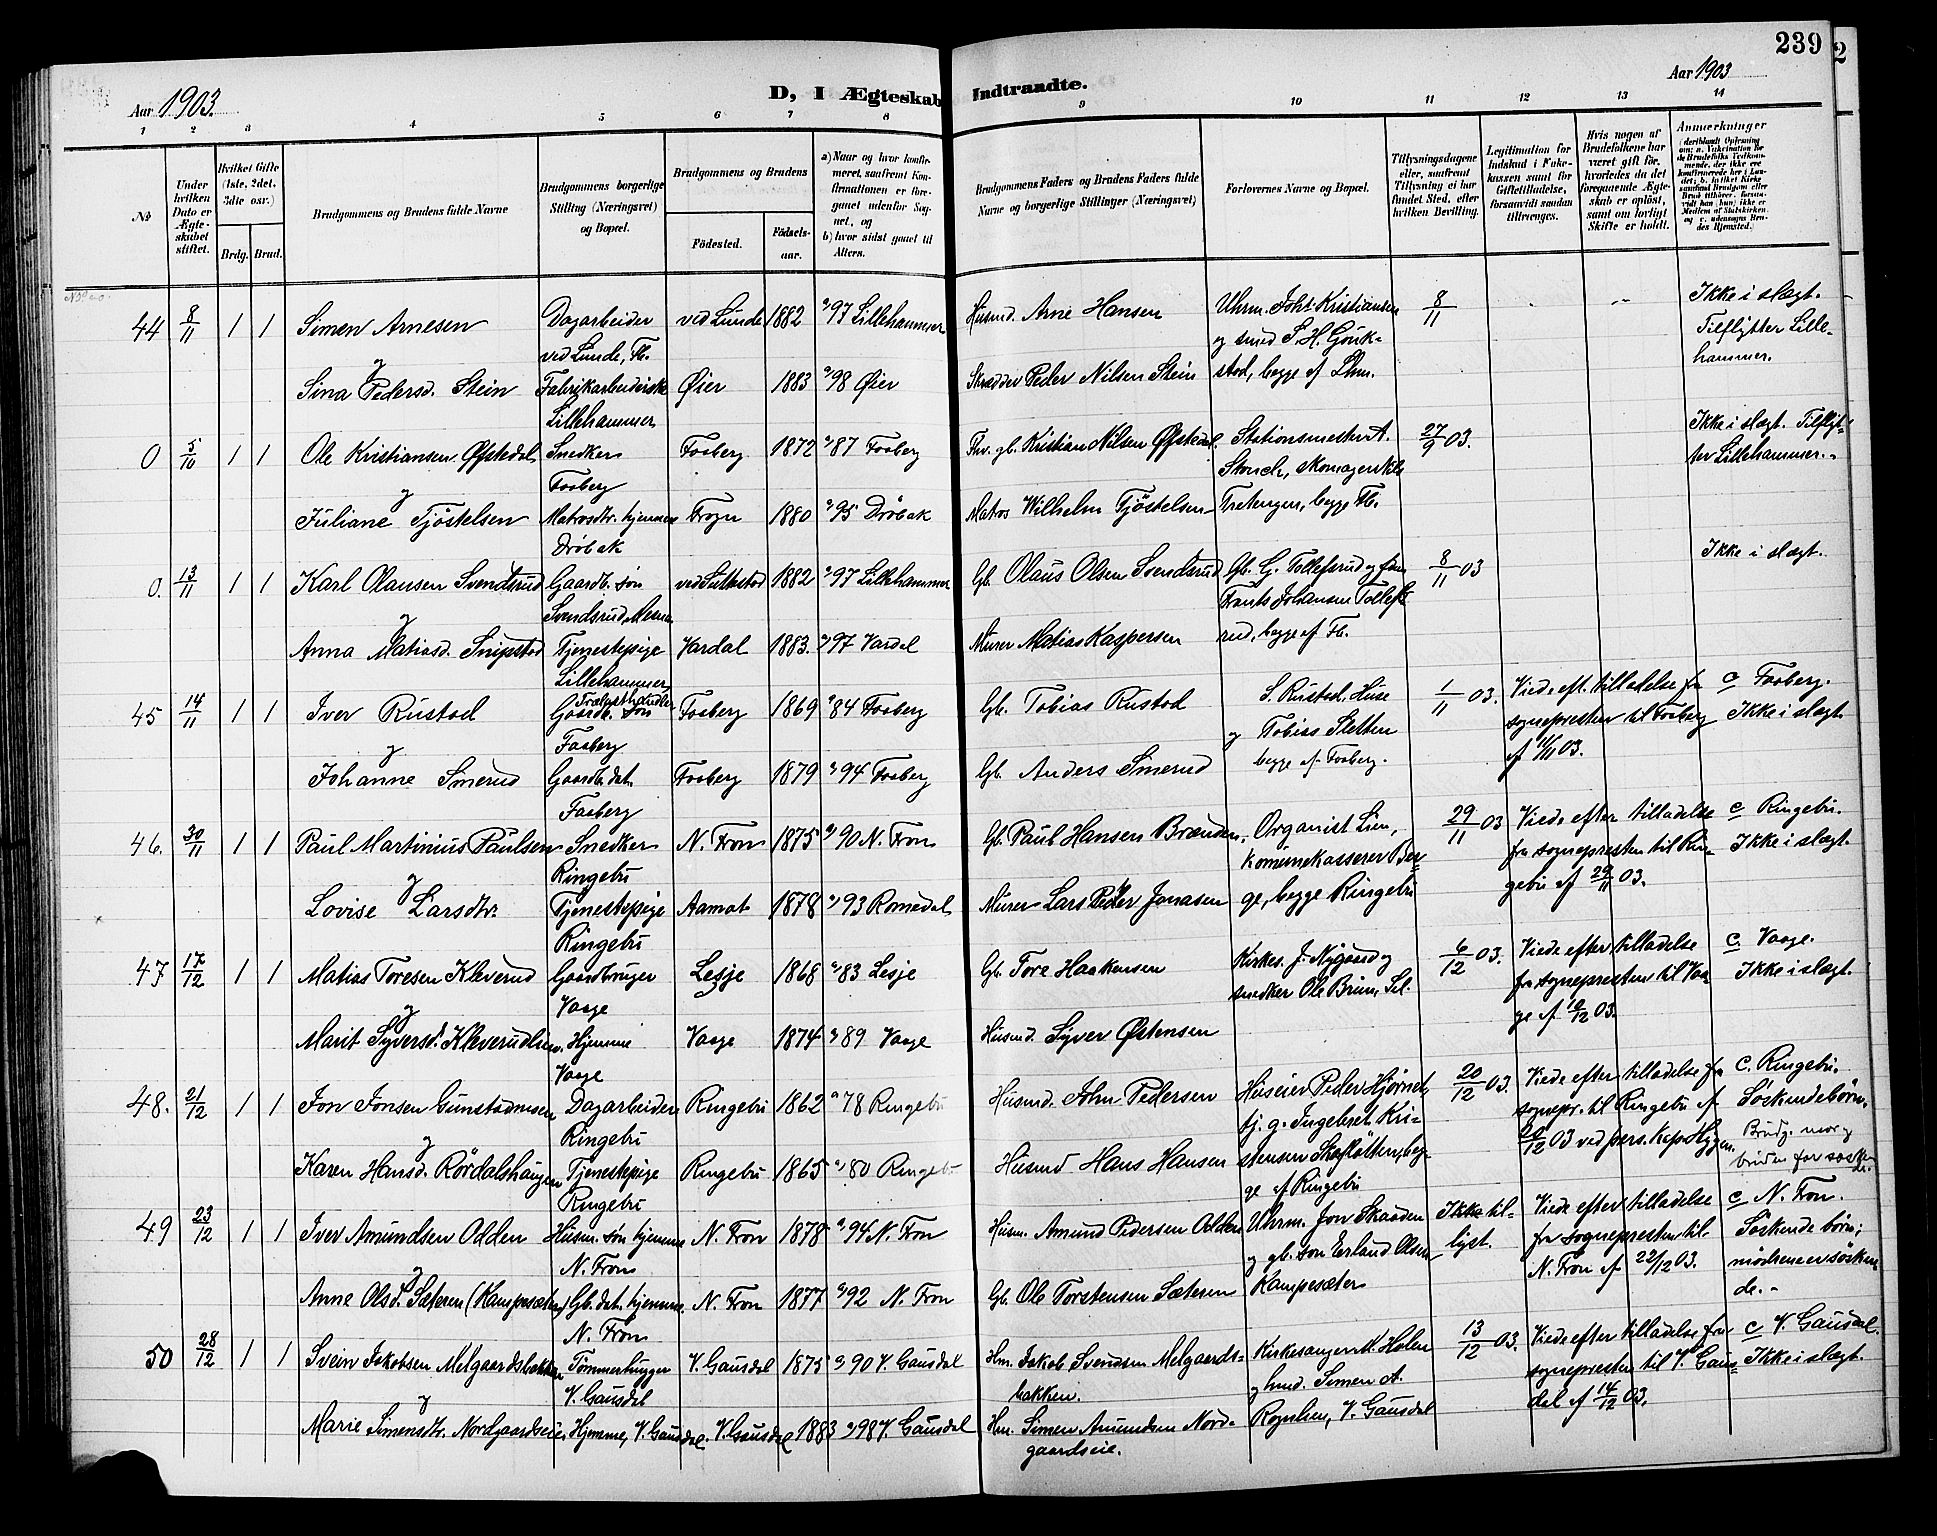 239
Aar 1903.
D, I Ægteskab Indtraadte.
Aar 1903
1 2 3 4 5 6 7 8 9 10 11 12 13 14
No
Under hvilken Dato er Ægteskabet stiftet.
Hvilket Gifte (1ste, 2det, 3die osv.)
Brdg. Brud.
Brudgommens og Brudens fulde Navne
Brudgommens borgerlige Stilling (Næringsvei) og Bopæl.
Brudgommens og Brudens
Födested. Födselsaar.
a) Naar og hvor konfirmeret, saafremt Konfirmationen er foregaaet udenfor Sognet, og
b) hvor sidst gaaet til Alters.
Brudgommens Faders og Brudens Faders fulde Navne og borgerlige Stillinger (Næringsvei)
Forlovernes Navne og Bopæl.
Tillysningsdagene eller, saafremt Tillysning ei har fundet Sted, efter hvilken Bevilling.
Legitimation for Indskud i Enkekassen samt for Giftetilladelse, forsaavidt saadan tiltrænges.
Hvis nogen af Brudefolkene har været gift før, hvorledes da det foregaaende Ægteskab er oplöst, samt om lovligt Skifte er holdt.
Anmærkninger
44 8/11 1 1 Simen Arnesen Dagarbeider ved Lunde 1882 97 Lillehammer Husmd. Arne Hansen Uhrm. Johs. Kristiansen 8/11 Ikke i slægt.
ved Lunde, Fb. og smed S. H. Gouk- Tilflytter Lille-
y hammer.
Sina Pedersd. Stein Fabrikarbeiderske Øier 1883 98 Øier Skrædder Peder Nilsen Stein stad, begge af Lhm.
Lillehammer
0 5/10 1 1 Ole Kristiansen Øfstedal Snedker Faaberg 1872 87 Faaberg Fhv. gb. Kristian Nilsen Øfstedal Stationsmester A. 27/9 03. Ikke i slægt. Tilflyt-
Faaberg Storch, skomager Nils ter Lillehammer.
y
Juliane Tjöstelsen Matrosdtr. hjemme Frogn 1880 95 Dröbak Matros Wilhelm Tjöstelsen Tretengen, begge Fb.
Dröbak
0. 13/11 1 1 Karl Olausen Svendsrud Gaardb. søn 1882 97 Lillehammer Gb. Olaus Olsen Svendsrud Gb. G. Tollefsrud og fhm. 8/11 03 Ikke i slægt.
Svendsrud, Mesna Frants Johansen Tollefs-
y
Anna Matiasd. Snipstad Tjenestepige Vardal 1883. 97 Vardal Murer Matias Kaspersen rud, begge af Fb.
Lillehammer
45 14/11 1 1 Iver Rustad Trælasthandler Gaardb. søn Faaberg 1869 84 Faaberg Gb. Tobias Rustad S. Rustad. Huse 1/11 03. Viede eft. tilladelse fra c Faaberg.
Faaberg og Tobias Sletten sognepresten til Faaberg Ikke i slægt.
y
Johanne Smerud Gaardb. dat. Faaberg 1879 94 Faaberg Gb. Anders Smerud begge af Faaberg. af 11/11 03.
Faaberg
46. 30/11 1 1 Paul Martinius Paulsen Snedker N. Fron 1875 90 N. Fron Gb. Paul Hansen Brænden. Organist Lien, 29/11 03 Viede efter tilladelse c Ringebu.
Ringebu komunekasserer Ber- fra sognepresten til Rin- Ikke i slægt.
y
Lovise Larsdtr. Tjenestepige Aamot 1878 93 Romedal Murer Lars Peder Jonasen ge, begge Ringebu gebu af 29/11 03.
Ringebu
47 17/12 1 1 Matias Toresen Kleverud Gaardbruger Lesje 1868 83 Lesje Gb. Tore Haakensen Kirkes. J. Nygaard og 6/12 03. Viede efter tilladelse c. Vaage.
Vaage snedker Ole Brun, Lil. fra sognepresten til Vaa- Ikke i slægt.
y ge af 10/12 03.
Marit Syversd. Kleverudlien. Hjemme Vaage 1874 89 Vaage Husmd. Syver Østensen
Vaage
48. 21/12 1 1 Jon Jonsen Gunstadmoen Dagarbeider Ringebu 1862 78 Ringebu Husmd. John Pedersen Huseier Peder Hjørnet, 20/12 03. Viede efter tilladelse fra c. Ringebu.
Ringebu tj. g. Ingebret Kri- sognepr. til Ringebu af Söskendebörn.
y 20/12 03 ved pers. kap. Hygen. Brudg. mor og
Karen Hansd. Rördalshaugen Tjenestepige Ringebu 1865 80 Ringebu Husmd Hans Hansen stensen Skofløtten, beg- bruden far søsken-
Ringebu ge af Ringebu de.
49 23/12 1 1 Iver Amundsen Odden Husm. søn hjemme N. Fron 1878 94 N. Fron Husm. Amund Pedersen Odden Uhrm. Jon Skaaden Ikke til- Viede efter tilladelse c N. Fron.
N. Fron og gb. søn Erland Olsen lyst. fra sognepresten til Söskendebörn;
y
Anne Olsd. Sæteren (Kampesæter) Gb. dat. hjemme. N. Fron 1877 92 N. Fron Gb. Ole Torstensen Sæteren Kampesæter N. Fron af 22/12 03. mödrene er søsken-
N. Fron de.
50 28/12 1 1 Svein Jakobsen Melgaardsbakken Tømmerhugger V. Gausdal 1875 90 V. Gausdal Hm. Jakob Svendsen Melgaards- Kirkesanger M. Holen 13/12 03. Viede efter tilladelse fra c V. Gausdal.
V. Gausdal bakken. og hmd. Simen A. sognepresten til V. Gaus- Ikke i slægt.
y
Marie Simensdtr. Nordgaardseie, Hjemme, V. Gausdal. V. Gausdal 1883 98 V. Gausdal Hm. Simen Amundsen Nord- Roqnlien, V. Gausdal dal af 14/12 03.
gaardseie.